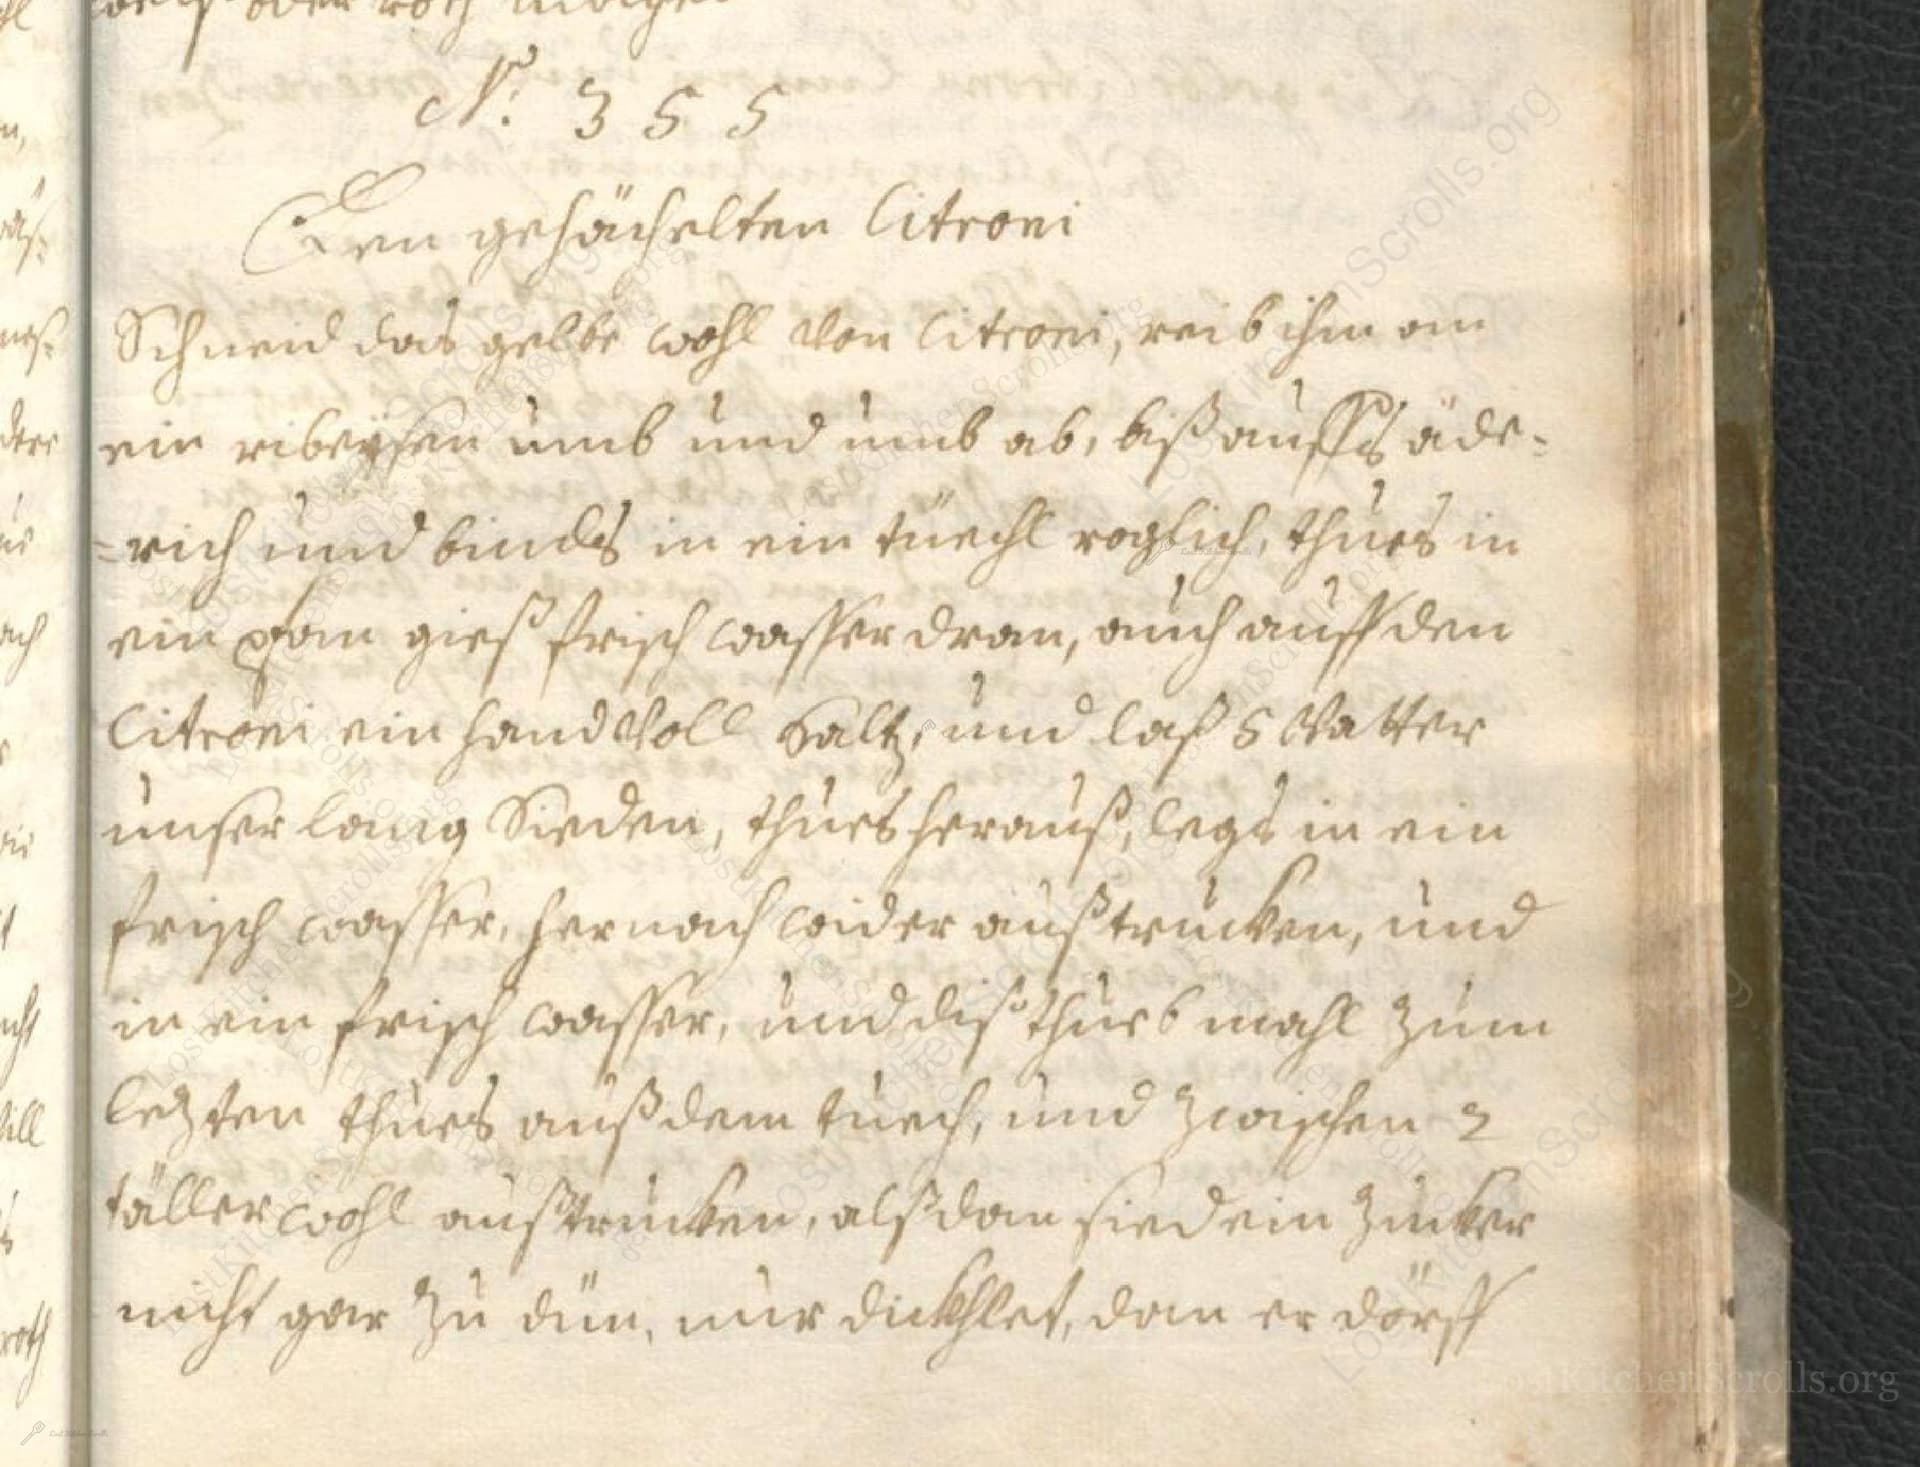 weiß oder roth
N: 355
Den gehächelten Citroni
Schneid das gelbe wohl von Citroni, reib ihm am
ein ribeysen umb und umb ab, biß auffs äde-
-rich und binds in ein tüechl roglich, thues in
ein pfan gieß frisch wasser dran, auch auff den
Citroni ein handvoll saltz, und laß 5 Vatter
unser lang Sieden, thues herauß, legs in ein
frisch wasser, hernach wider außtrucken, und
in ein frisch wasser, und diß thue 6 mahl zum
lezten thues auß dem tuech, und zwischen 2
täller wohl außtrucken, alßdan sied ein zucker
nicht gar zu dün, nur dickhlet, dan er dörff
LostKitchenScrolls.org